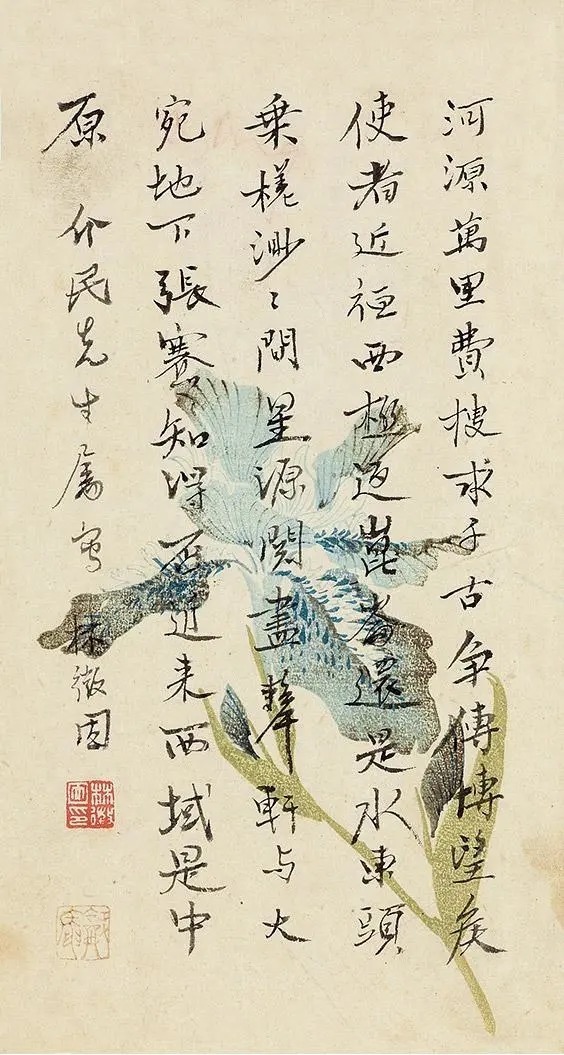 河源萬里費搜求千古爭傳博望矦
使者近從西極返崑崙還是水東頭
乗槎渺〻問星源閱盡犂軒与大
宛地下張騫知得否近来西域是中
原 介民先生屬寫 林徽因
林徽因印